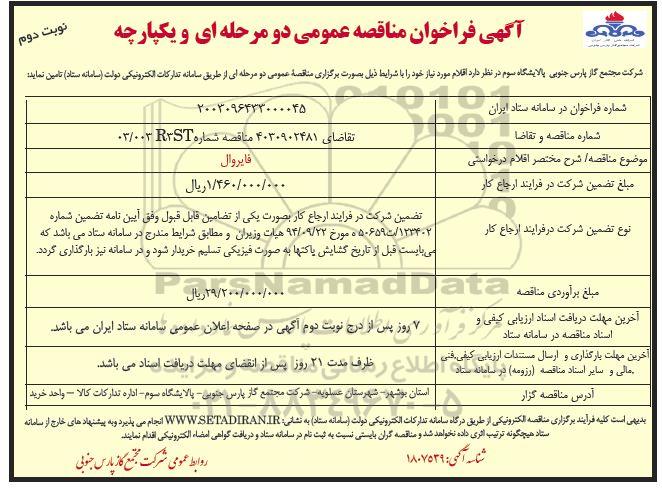 آگهی فراخوان مناقصه عمومی دو مرحله ای و یکپارچه
نوبت دوم
شرکت مجتمع گاز پارس جنوبی پالایشگاه سوم در نظر دارد اقلام مورد نیاز خود را با شرایط ذیل بصورت برگزاری مناقصة عمومی دو مرحله ای از طریق سامانه تدارکات الکترونیکی دولت (سامانه ستاد) تامین نماید:
شماره فراخوان در سامانه ستاد ایران
۲۰۰۳۰۹۶۴۳۳۰۰۰۰۴۵
شماره مناقصه و تقاضا
تقاضای ۴۰۳۰۹۰۲۴۸۱ مناقصه شماره R۳ST ۰۳/۰۰۳
موضوع مناقصه/ شرح مختصر اقلام درخواستی
فایروال
مبلغ تضمین شرکت در فرایند ارجاع کار
۱/۴۶۰/۰۰۰/۰۰۰ریال
نوع تضمین شرکت درفرایند ارجاع کار
تضمین شرکت در فرایند ارجاع کار بصورت یکی از تضامین قابل قبول وفق آیین نامه تضمین شماره
۱۲۳۴۰۲/ت۵۰۶۵۹ ه مورخ ۹۴/۰۹/۲۲ هیات وزیران و مطابق شرایط مندرج در سامانه ستاد می باشد که
می‌بایست قبل از تاریخ گشایش پاکتها به صورت فیزیکی تسلیم خریدار شود و در سامانه نیز بارگذاری گردد.
مبلغ برآوردی مناقصه
۲۹/۲۰۰/۰۰۰/۰۰۰ریال
آخرین مهلت دریافت اسناد ارزیابی کیفی و
اسناد مناقصه در سامانه ستاد
۷ روز پس از درج نوبت دوم آگهی در صفحه اعلان عمومی سامانه ستاد ایران می باشد.
آخرین مهلت بارگذاری و ارسال مستندات ارزیابی کیفی،فنی
،مالی و سایر اسناد مناقصه (رزومه) در سامانه ستاد
ظرف مدت ۲۱ روز پس از انقضای مهلت دریافت اسناد می باشد.
آدرس مناقصه گزار
استان بوشهر- شهرستان عسلویه- شرکت مجتمع گاز پارس جنوبی- پالایشگاه سوم- اداره تدارکات کالا – واحد خرید
بدیهی است کلیه فرآیند برگزاری مناقصه الکترونیکی از طریق درگاه سامانه تدارکات الکترونیکی دولت (سامانه ستاد) به نشانی: WWW.SETADIRAN.IR انجام می پذیرد وبه پیشنهاد های خارج از سامانه
ستاد هیچگونه ترتیب اثری داده نخواهد شد و مناقصه گران بایستی نسبت به ثبت نام در سامانه ستاد و دریافت گواهی امضاء الکترونیکی اقدام نمایند.
شناسه آگهی: ۱۸۰۷۵۳۹
روابط عمومی شرکت مجتمع گاز پارس جنوبی
ParsNamadData